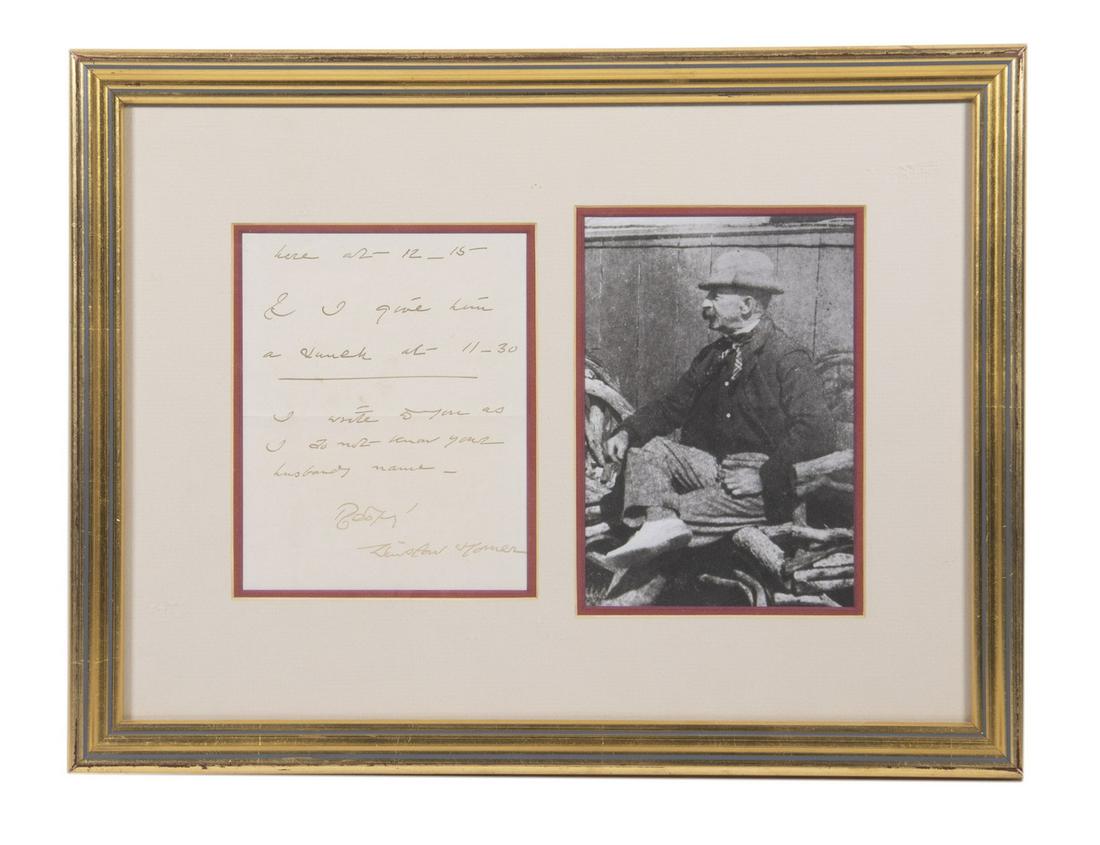 here at 12_15
& I give him
a lunch at 11-30
I write to you as
I do not know your
husbands name _
Winslow Homer